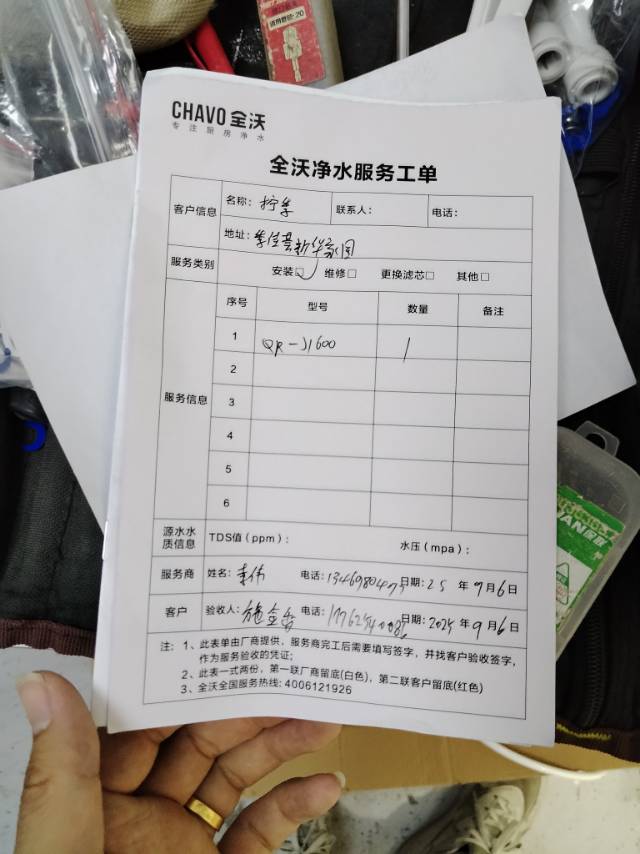 适用管径:20
CHAVO 全沃
专注厨房净水
全沃净水服务工单
客户信息 名称: 联系人: 电话:
地址:
服务类别 安装□ 维修□ 更换滤芯□ 其他□
服务信息 序号 型号 数量 备注
1 QR-J1600 1
2
3
4
5
6
源水水质信息 TDS值(ppm): 水压(mpa):
服务商 姓名:李伟 电话: 日期:25年9月6日
客户 验收人: 电话: 日期:2025年9月6日
注: 1、此表单由厂商提供,服务商完工后需要填写签字,并找客户验收签字,
作为服务验收的凭证;
2、此表一式两份,第一联厂商留底(白色),第二联客户留底(红色)
3、全沃全国服务热线: 4006121926